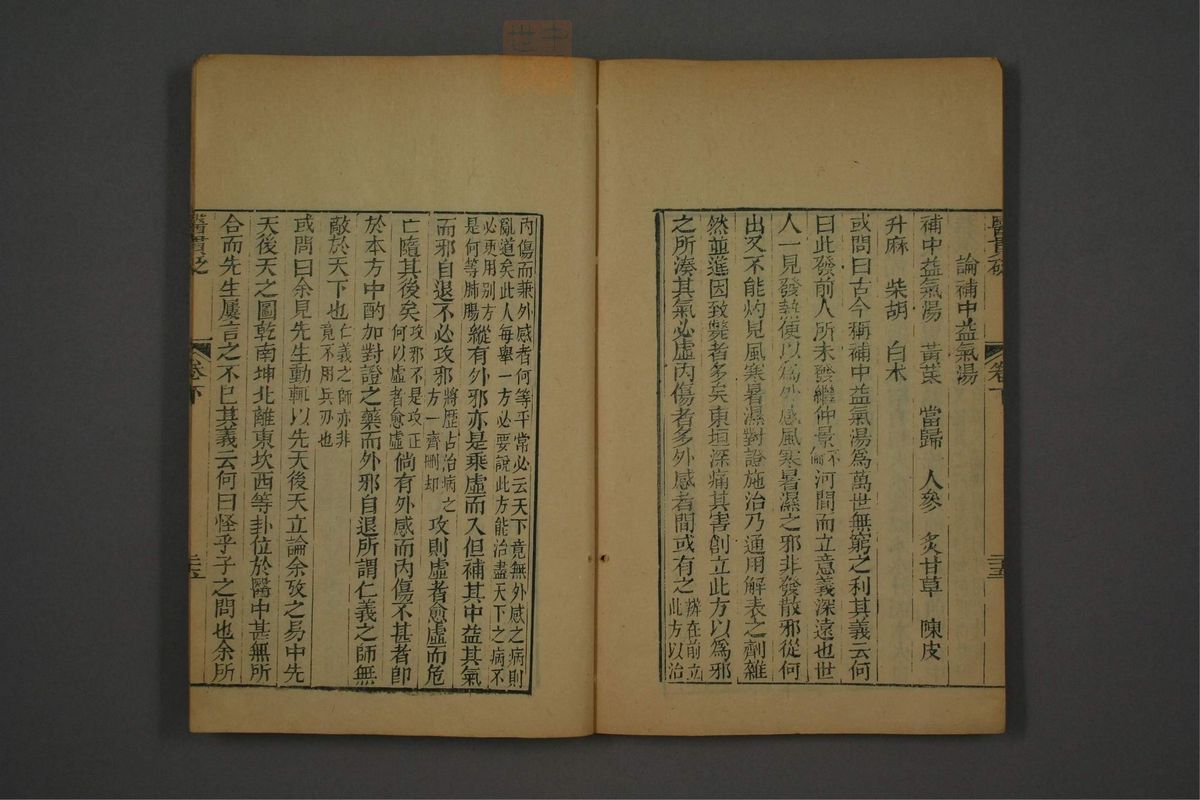 醫貫砭 卷下 二十五
論補中益氣湯
補中益氣湯 黃芪 當歸 人參 炙甘草 陳皮
升麻 柴胡 白术
或問曰古今稱補中益氣湯為萬世無窮之利其義云何
曰此發前人所未發繼仲景河間而立意義深遠也世
人一見發熱便以為外感風寒暑濕之邪非發散邪從何
出又不能灼見風寒暑濕對證施治乃通用解表之劑雜
然並進因致斃者多矣東垣深痛其害創立此方以為邪
之所湊其氣必虛內傷者多外感者間或有之
辨在前立
此方以治
內傷而兼外感者何等平常必云天下竟無外感之病則
亂道矣此人每舉一方必要說此方能治盡天下之病不
必更用別方
是何等肺腸
縱有外邪亦是乘虛而入但補其中益其氣
而邪自退不必攻邪
將歷古治病之
方一齊刪却
攻則虛者愈虛而危
亡隨其後矣
攻邪不是攻正
何以虛者愈虛
倘有外感而內傷不甚者即
於本方中酌加對證之藥而外邪自退所謂仁義之師無
敵於天下也
仁義之師亦非
竟不用兵刃也
或問曰余見先生動輒以先天後天立論余攷之易中先
天後天之圖乾南坤北離東坎西等卦位於醫中甚無所
合而先生屢言之不已其義云何曰怪乎子之問也余所
卷下